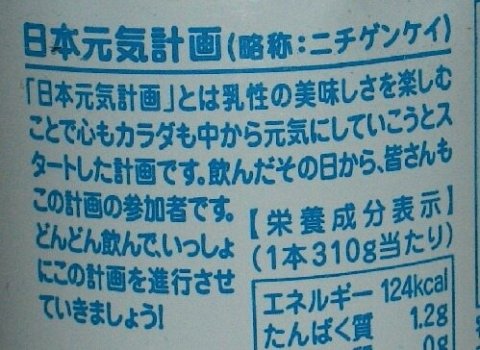 日本元気計画(略称:ニチゲンケイ)
「日本元気計画」とは乳性の美味しさを楽しむ
ことで心もカラダも中から元気にしていこうとス
タートした計画です。飲んだその日から、皆さんも
この計画の参加者です。
どんどん飲んで、いっしょ
にこの計画を進行させ
ていきましょう!
【栄養成分表示】
(1本310g当たり)
エネルギー 124kcal
たんぱく質 1.2g
質 0g